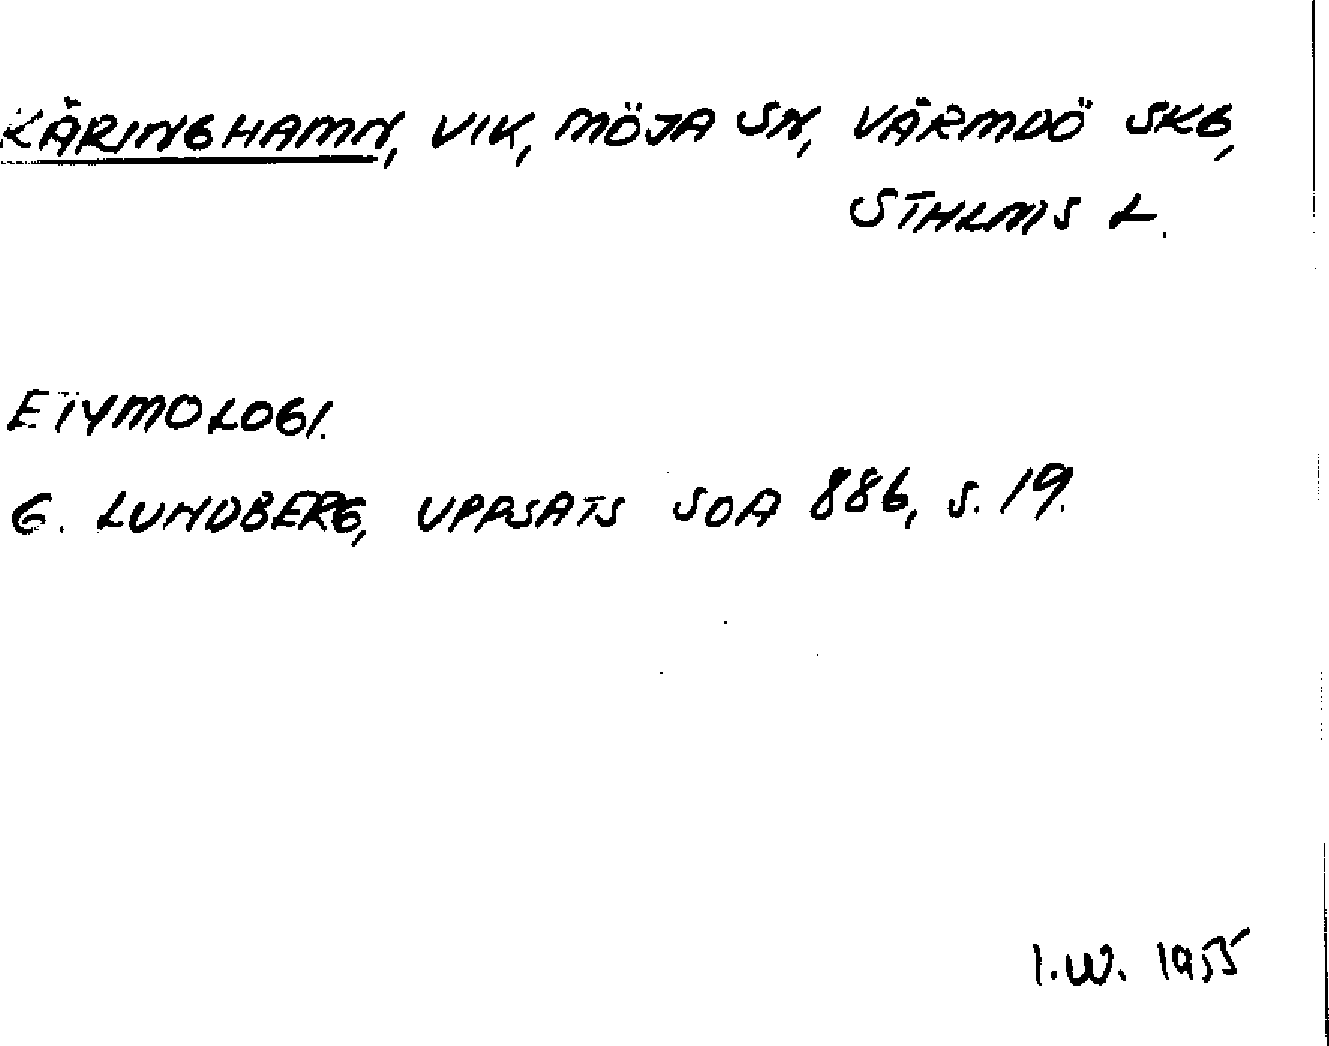 KÄRINGHAMN, VIK, MÖJA SN, VÄRMDÖ SKG,
STHLMS L.
ETYMOLOGI.
G. LUNDBERG, UPPSATS SOA 886, S. 19.
I.W. 1955